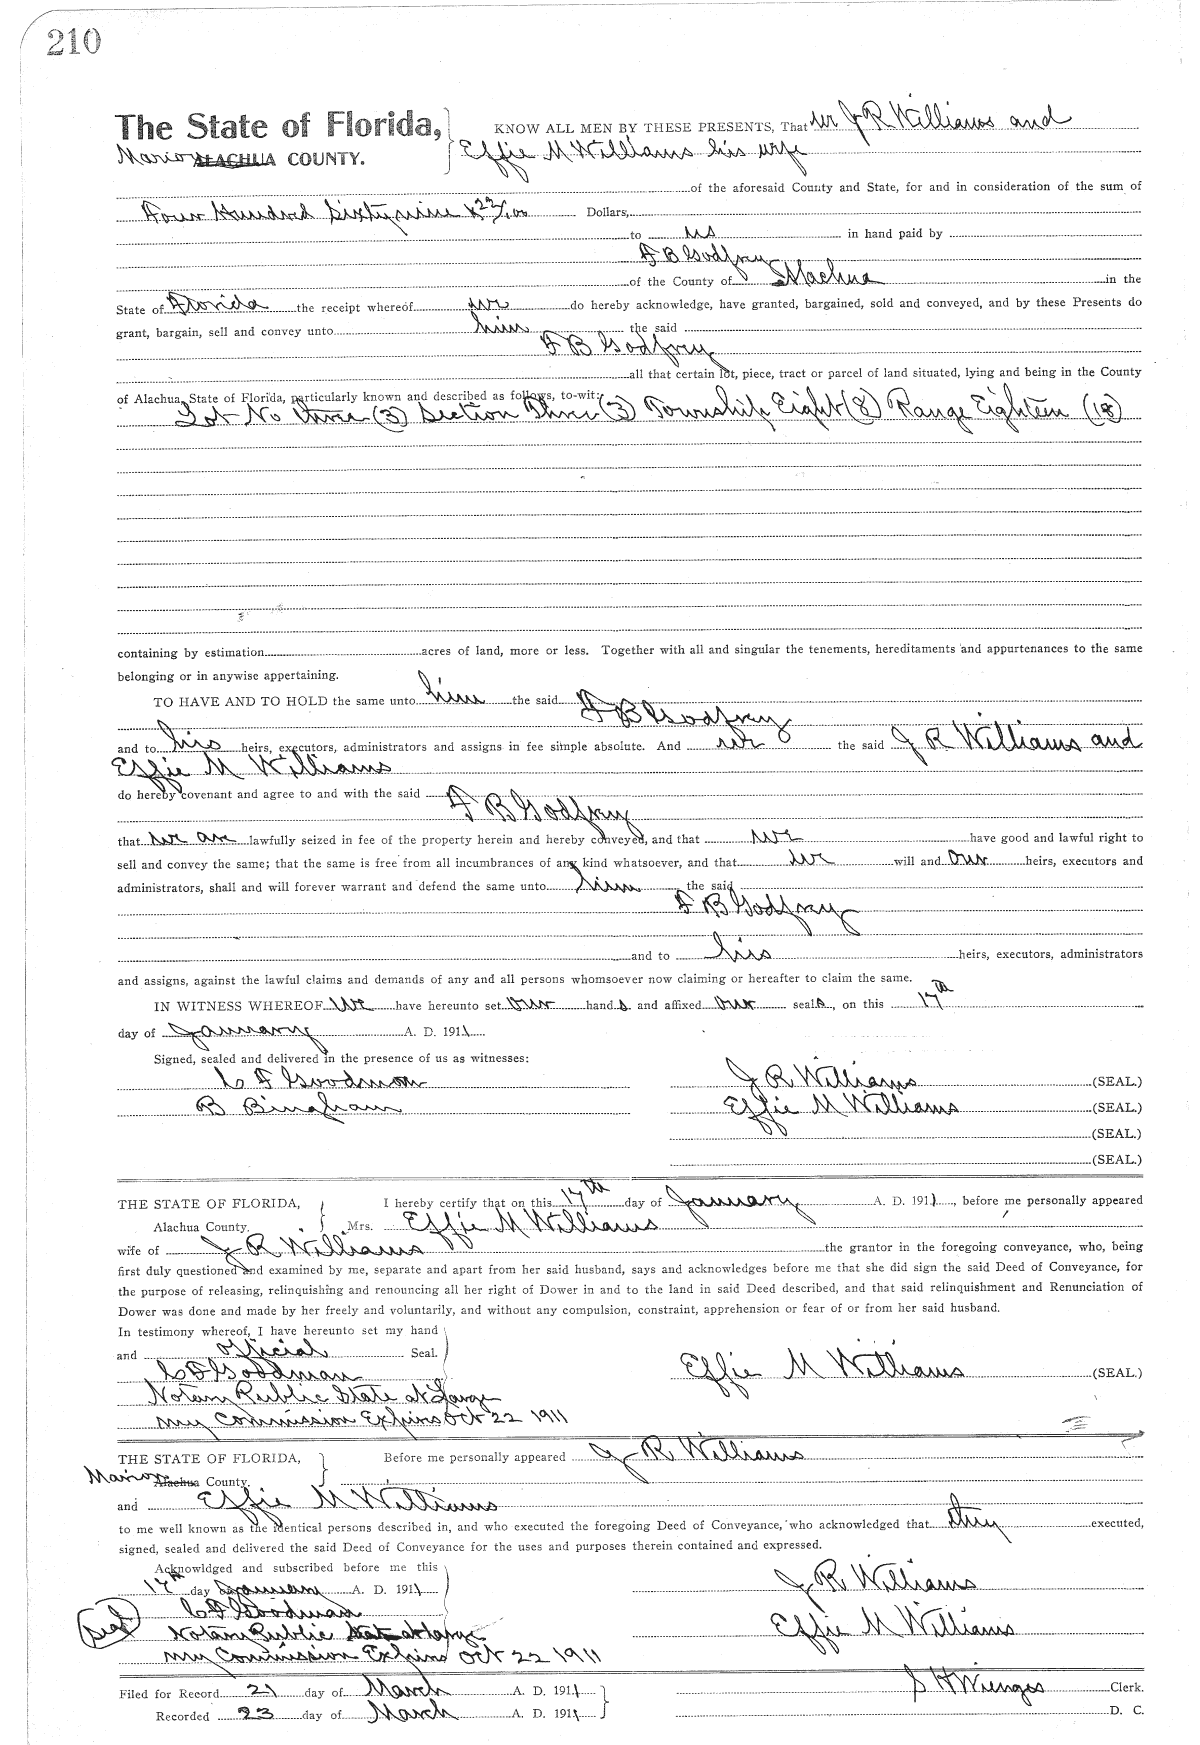 210
The State of Florida, KNOW ALL MEN BY THESE PRESENTS, That we J R Williams and
Marion ALACHUA COUNTY. Effie M Williams his wife
of the aforesaid County and State, for and in consideration of the sum of
Four Hundred Sixtynine & 22/100 Dollars,
to us in hand paid by
F B Godfrey
of the County of Alachua in the
State of Florida the receipt whereof we do hereby acknowledge, have granted, bargained, sold and conveyed, and by these Presents do
grant, bargain, sell and convey unto him the said
F B Godfrey
all that certain lot, piece, tract or parcel of land situated, lying and being in the County
of Alachua, State of Florida, particularly known and described as follows, to-wit:
Lot No three (3) Section Three (3) Township Eight (8) Range Eighteen (18)
containing by estimation acres of land, more or less. Together with all and singular the tenements, hereditaments and appurtenances to the same
belonging or in anywise appertaining.
TO HAVE AND TO HOLD the same unto him the said
F B Godfrey
and to his heirs, executors, administrators and assigns in fee simple absolute. And we the said J R Williams and
Effie M Williams
do hereby covenant and agree to and with the said
F B Godfrey
that we are lawfully seized in fee of the property herein and hereby conveyed, and that we have good and lawful right to
sell and convey the same; that the same is free from all incumbrances of any kind whatsoever, and that we will and our heirs, executors and
administrators, shall and will forever warrant and defend the same unto him the said
F B Godfrey
and to his heirs, executors, administrators
and assigns, against the lawful claims and demands of any and all persons whomsoever now claiming or hereafter to claim the same.
IN WITNESS WHEREOF We have hereunto set our hands and affixed our seals, on this 17th
day of January A. D. 1911
Signed, sealed and delivered in the presence of us as witnesses:
C F Goodman J R Williams (SEAL.)
B Bingham Effie M Williams (SEAL.)
(SEAL.)
(SEAL.)
THE STATE OF FLORIDA, I hereby certify that on this 17th day of January A. D. 1911, before me personally appeared
Alachua County. Mrs. Effie M Williams
wife of J R Williams the grantor in the foregoing conveyance, who, being
first duly questioned and examined by me, separate and apart from her said husband, says and acknowledges before me that she did sign the said Deed of Conveyance, for
the purpose of releasing, relinquishing and renouncing all her right of Dower in and to the land in said Deed described, and that said relinquishment and Renunciation of
Dower was done and made by her freely and voluntarily, and without any compulsion, constraint, apprehension or fear of or from her said husband.
In testimony whereof, I have hereunto set my hand
and official Seal.
C F Goodman Effie M Williams (SEAL.)
Notary Public State at Large
My Commission Expires Oct 22 1911
THE STATE OF FLORIDA, Before me personally appeared J R Williams
Marion Alachua County.
and Effie M Williams
to me well known as the identical persons described in, and who executed the foregoing Deed of Conveyance, who acknowledged that they executed,
signed, sealed and delivered the said Deed of Conveyance for the uses and purposes therein contained and expressed.
Acknowldged and subscribed before me this
17th day January A. D. 1911 J R Williams
C F Goodman
seal Notary Public State at Large Effie M Williams
My Commission Expires Oct 22 1911
Filed for Record 21 day of March A. D. 1911 S H Wienges Clerk.
Recorded 23 day of March A. D. 1911 D. C.